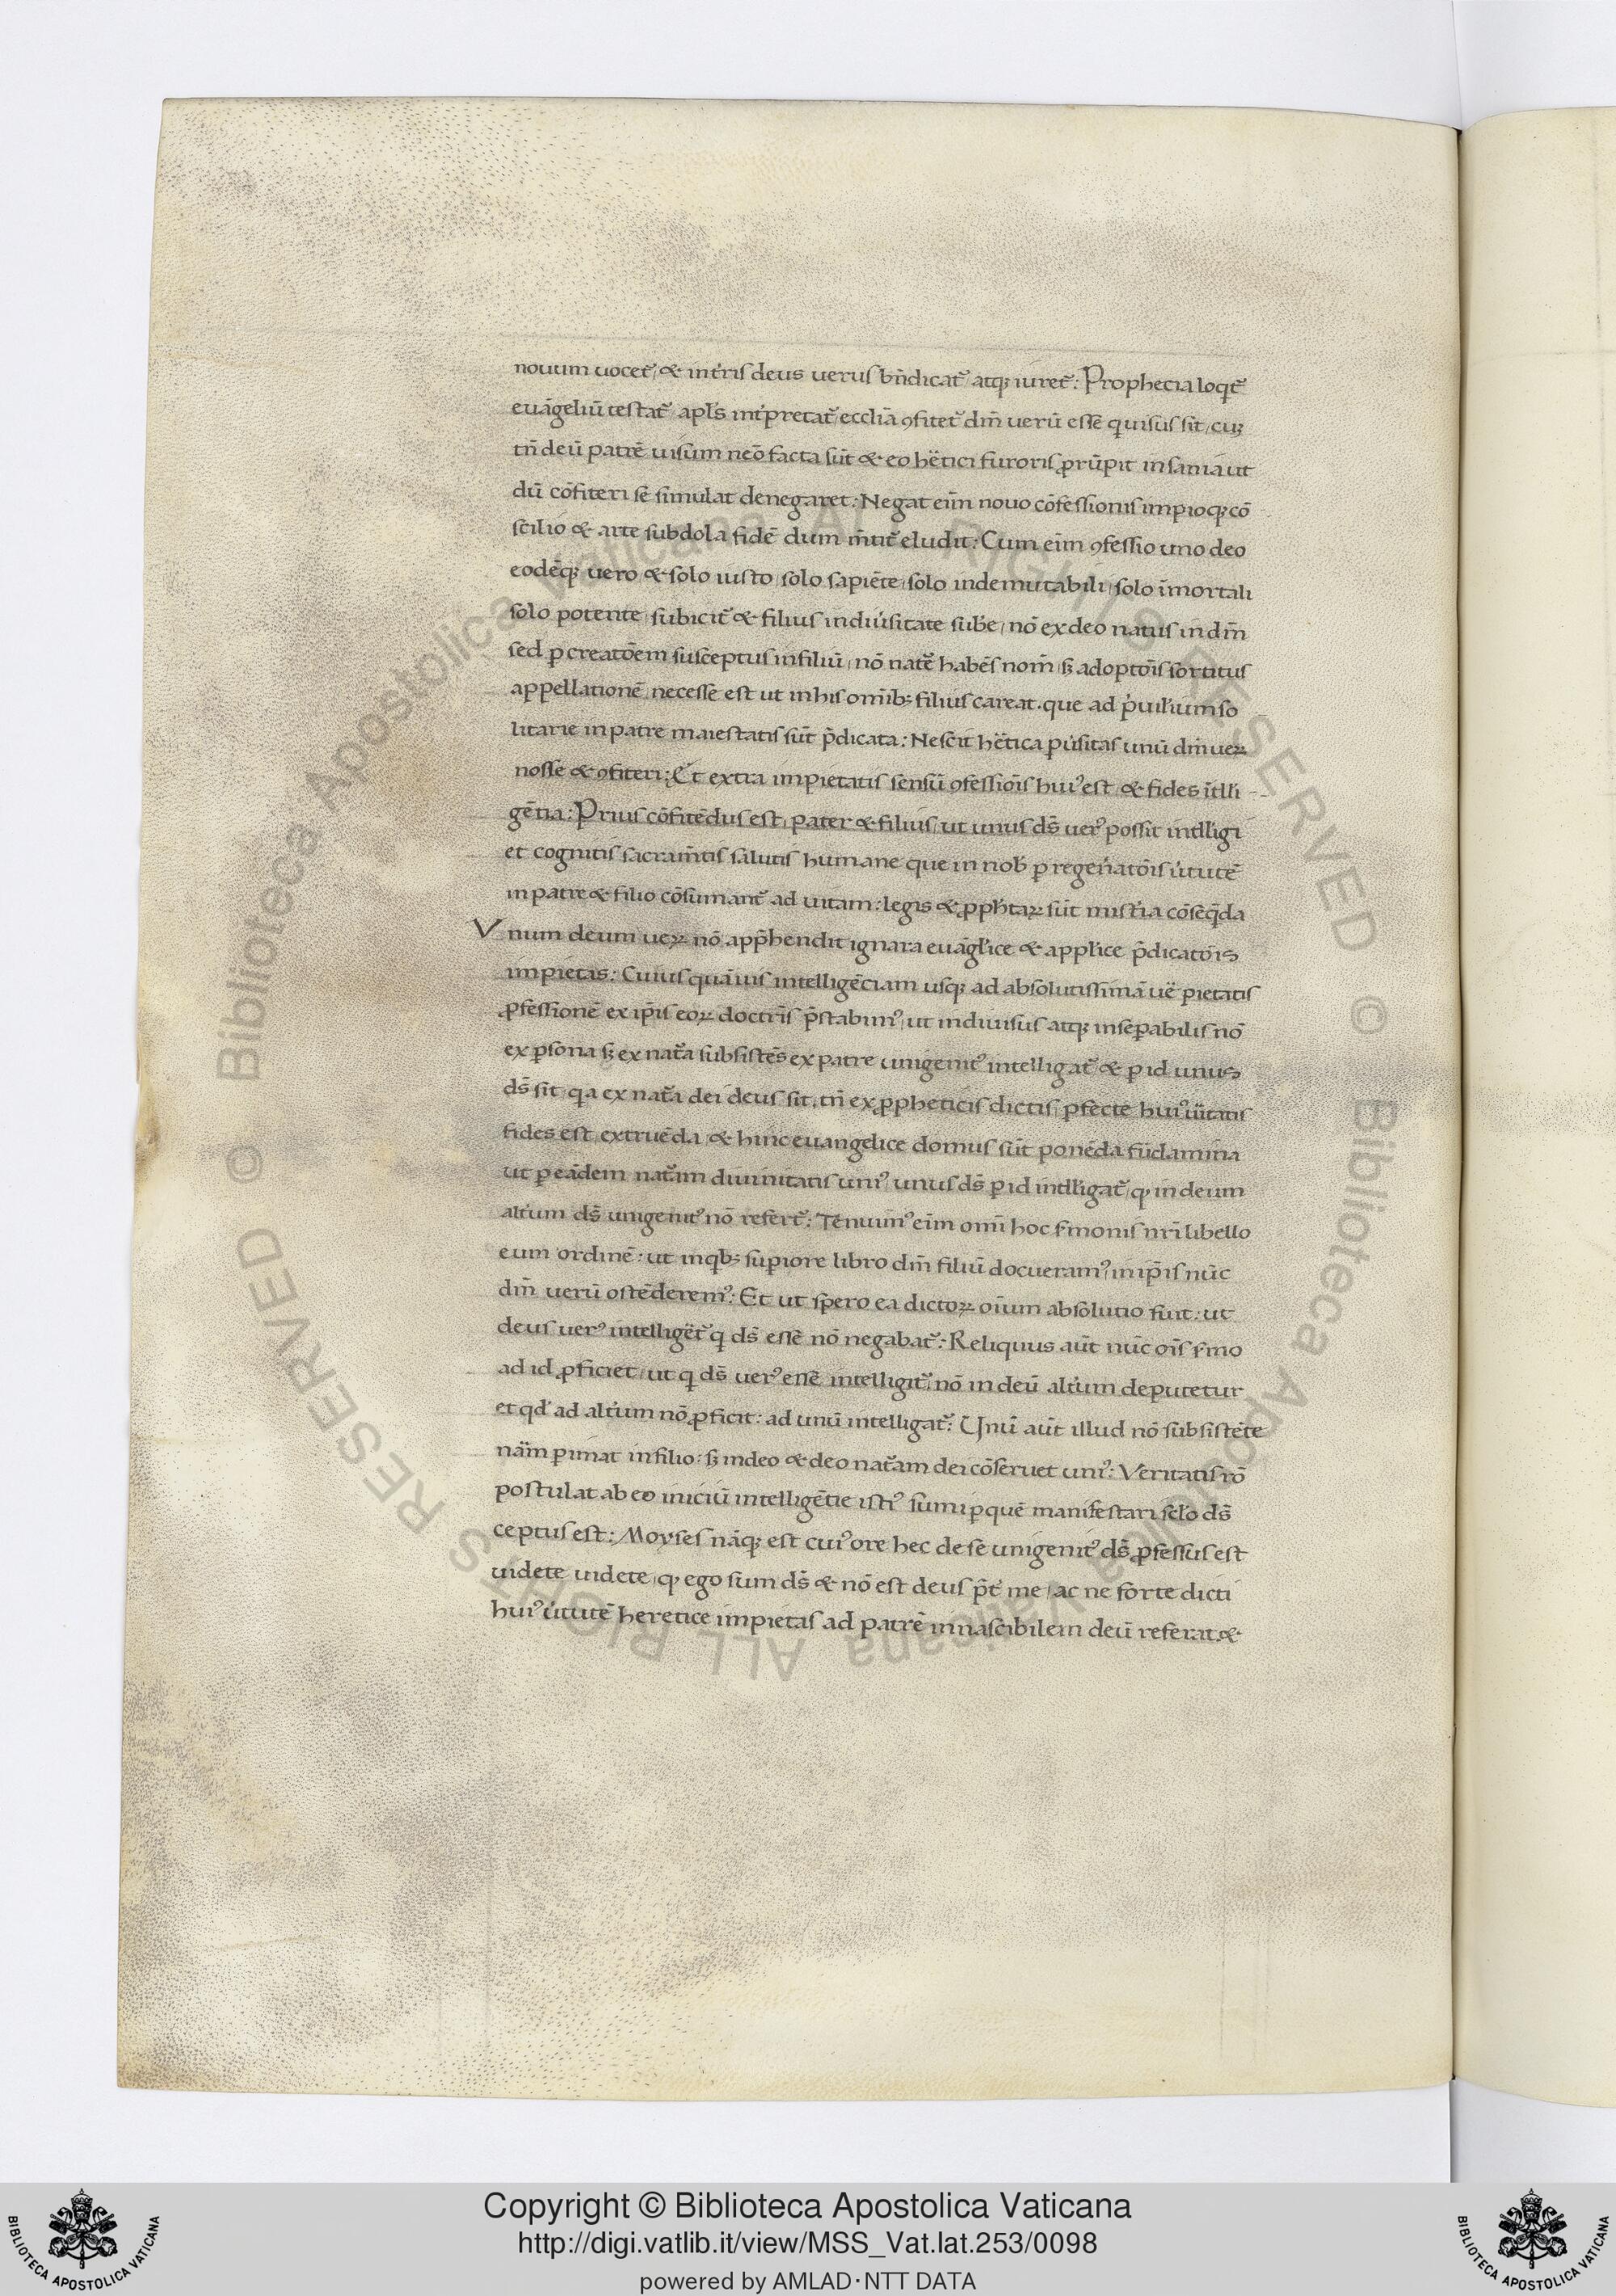 nouum uocet᷒ / & int'ris deus uerus bn̄dicat᷒ atq; iuret᷒ : Prophecia loqt᷒
euāgeliū testat᷒ apl's int'pretat᷒ / ecclīa ꝯfitet᷒ dm̄ uerū esse qui uisus sit / cuꝫ
tn̄ deū patrē uisum nēo facta sūt & eo hētici furoris ꝓrūpit insania ut
dū cōfiteri se simulat denegaret : Negat eim̄ nouo cōfessionis impioq; cō
silio & arte subdola fidē dum m̄tit᷒ eludit : Cum eim̄ ꝯfessio uno deo
eodēq; uero & solo iusto / solo sapiēte / solo indemutabili / solo īmortali
solo potente / subicit᷒ & filius indiu'sitate sub'e / nō ex deo natus in dm̄
sed ꝑ creatōem susceptus in filiū / nō nat᷒e habēs nom̄ / sꝫ adoptōis sortitus
appellationē / necesse est ut in his om̄ib; filius careat . que ad p'uil'ium so
litarie in patre maiestatis sūt p̄dicata : Nescit hētica pu'sitas unū dm̄ ueꝝ
nosse & ꝯfiteri : Et extra impietatis sensū ꝯfessiōis huiꝰ est & fides ītlli
gētia : Prius cōfitēdus est / pater & filius / ut unus ds̄ uerꝰ possit intll'igi
et cognitis sacram̄tis salutis humane que in nob' ꝑ regen'atōis u'tutē
in patre & filio cōsumant᷒ ad uitam : legis & ꝓph'taꝝ sūt mist'ia cōseq̄da
Vnum deum ueꝝ nō app̄hendit ignara euāgl'ice & appl'ice p̄dicatōis
impietas : Cuius quāuis intelligēciam usq; ad absolutissimā ue pietatis
ꝓfessionē ex ip̄is eoꝝ doctrīs p̄stabimꝰ / ut indiuisus atq; insepabilis nō
ex ꝑsona sꝫ ex nat᷒a subsistēs ex patre unigenitꝰ intelligat᷒ & ꝑ id unus
ds̄ sit / qa ex nat᷒a dei deus sit / tn̄ ex ꝓpheticis dictis / ꝑfecte huiꝰ uitatis
fides est extruēda / & hinc euangelice domus sūt ponēda fūdamina
ut ꝑ eādem nat᷒am diuinitatis uniꝰ unus ds̄ ꝑ id intll'igat᷒ / q' in deum
alt'um ds̄ unigenitꝰ nō refert᷒ : Tenuimꝰ eim̄ omī hoc s'monis nr̄i libello
eum ordinē : ut in qb; supiore libro dm̄ filiū docueramꝰ / in ip̄is nūc
dm̄ uerū ostēderemꝰ : Et ut spero ea dictoꝝ oīum absolutio fuit : ut
deus uerꝰ intelliget᷒ q ds̄ esse nō negabat᷒ : Reliquus aūt nūc oīs s'mo
ad id ꝓficiet / ut q ds̄ uerꝰ esse intelligit᷒ / nō in deū alt'um deputetur
et qd' ad alt'um nō ꝓficit : ad unū intelligat᷒ : Unū aūt illud nō subsistēte
nām perimat in filio : sꝫ in deo & deo nat᷒am dei cōseruet uniꝰ : Veritatis rō
postulat ab eo iniciū intelligētie istiꝰ sumi ꝑ quē manifestari sc'lo ds̄
ceptus est : Moyses nāq; est cuiꝰ ore hec de se unigenitꝰ ds̄ ꝓfessus est
uidete uidete / q' ego sum ds̄ & nō est deus p̄t' me / ac ne forte dicti
huiꝰ u'tutē heretice impietas ad patrē innascibilem deū referat . &
© Biblioteca Apostolica Vaticana ALL RIGHTS RESERVED © Biblioteca Apostolica Vaticana ALL RIGHTS RESERVED
Copyright © Biblioteca Apostolica Vaticana
http://digi.vatlib.it/view/MSS_Vat.lat.253/0098
powered by AMLAD·NTT DATA
BIBLIOTECA APOSTOLICA VATICANA
BIBLIOTECA APOSTOLICA VATICANA